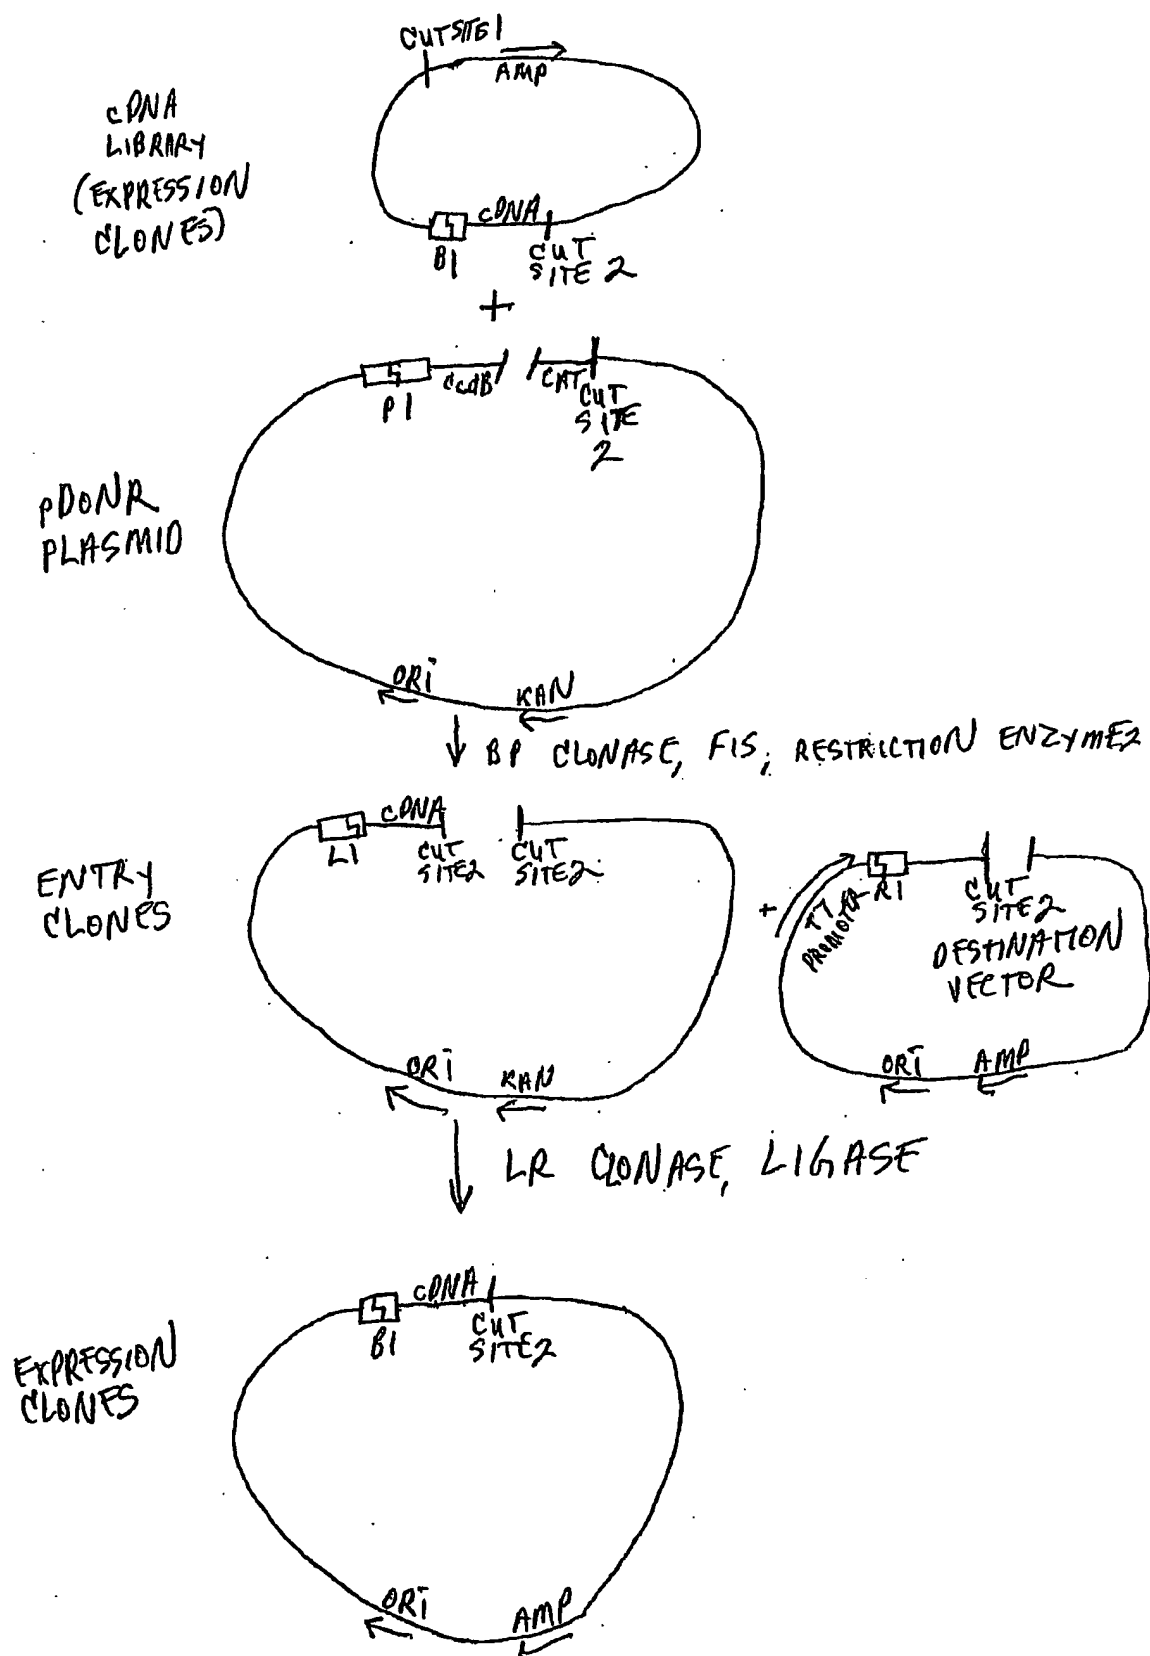 CUT SITE 1
AMP
cDNA
LIBRARY
(EXPRESSION
CLONES)
cDNA
B1
CUT
SITE 2
+
P1
CcdB
CAT
CUT
SITE
2
pDONR
PLASMID
ORI
KAN
BP CLONASE, FIS, RESTRICTION ENZYME2
ENTRY
CLONES
L1
cDNA
CUT
SITE2
CUT
SITE2
ORI
KAN
+
T7
PROMOTER
R1
CUT
SITE2
DESTINATION
VECTOR
ORI
AMP
LR CLONASE, LIGASE
EXPRESSION
CLONES
B1
cDNA
CUT
SITE2
ORI
AMP